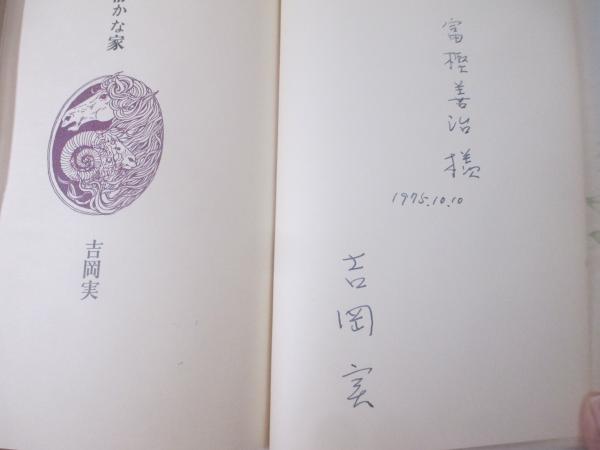 富樫善治様
1975.10.10
吉岡実
かな家
吉岡実